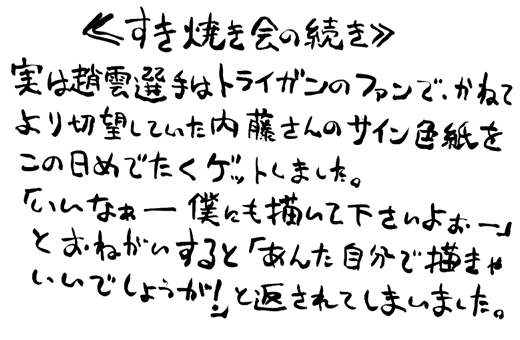 ≪すき焼き会の続き≫
実は趙雲選手はトライガンのファンで、かねて
より切望していた内藤さんのサイン色紙を
この日めでたくゲットしました。
「いいなぁー僕にも描いて下さいよぉー」
とおねがいすると「あんた自分で描きゃ
いいでしょうが!」と返されてしまいました。